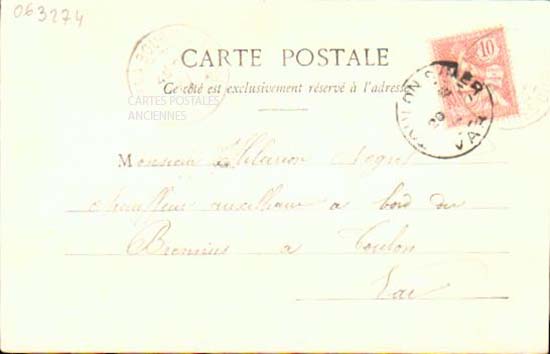 063274
CARTE POSTALE
Ce côté est exclusivement réservé à l'adresse
CARTES POSTALES
ANCIENNES
10
TOULON SUR MER
VAR
Monsieur Hilarion
chauffeur auxiliaire a bord du
Brennus a Toulon
Var